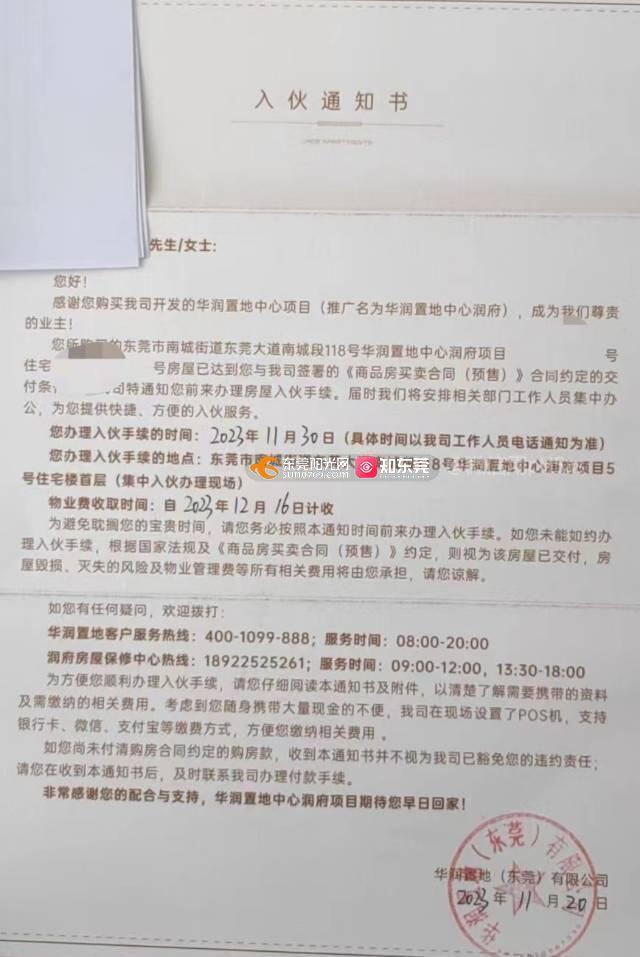 入伙通知书
先生/女士：
您好！
感谢您购买我司开发的华润置地中心项目（推广名为华润置地中心润府），成为我们尊贵
的业主！
您所购买的东莞市南城街道东莞大道南城段118号华润置地中心润府项目 号
住宅 号房屋已达到您与我司签署的《商品房买卖合同（预售）》合同约定的交
付条 司特通知您前来办理房屋入伙手续。届时我们将安排相关部门工作人员集中办
公，为您提供快捷、方便的入伙服务。
您办理入伙手续的时间：2023年11月30日（具体时间以我司工作人员电话通知为准）
您办理入伙手续的地点：东莞市南 8号华润置地中心润府项目5
东莞阳光网 知东莞
sun0769.com
号住宅楼首层（集中入伙办理现场）
物业费收取时间：自2023年12月16日计收
为避免耽搁您的宝贵时间，请您务必按照本通知时间前来办理入伙手续。如您未能如约办
理入伙手续，根据国家法规及《商品房买卖合同（预售）》约定，则视为该房屋已交付，房
屋毁损、灭失的风险及物业管理费等所有相关费用将由您承担，请您谅解。
如您有任何疑问，欢迎拨打：
华润置地客户服务热线：400-1099-888；服务时间：08:00-20:00
润府房屋保修中心热线：18922525261；服务时间：09:00-12:00，13:30-18:00
为方便您顺利办理入伙手续，请您仔细阅读本通知书及附件，以清楚了解需要携带的资料
及需缴纳的相关费用。考虑到您随身携带大量现金的不便，我司在现场设置了POS机，支持
银行卡、微信、支付宝等缴费方式，方便您缴纳相关费用。
如您尚未付清购房合同约定的购房款，收到本通知书并不视为我司已豁免您的违约责任；
请您在收到本通知书后，及时联系我司办理付款手续。
非常感谢您的配合与支持，华润置地中心润府项目期待您早日回家！
华润置地（东莞）有限公司
2023年11月20日